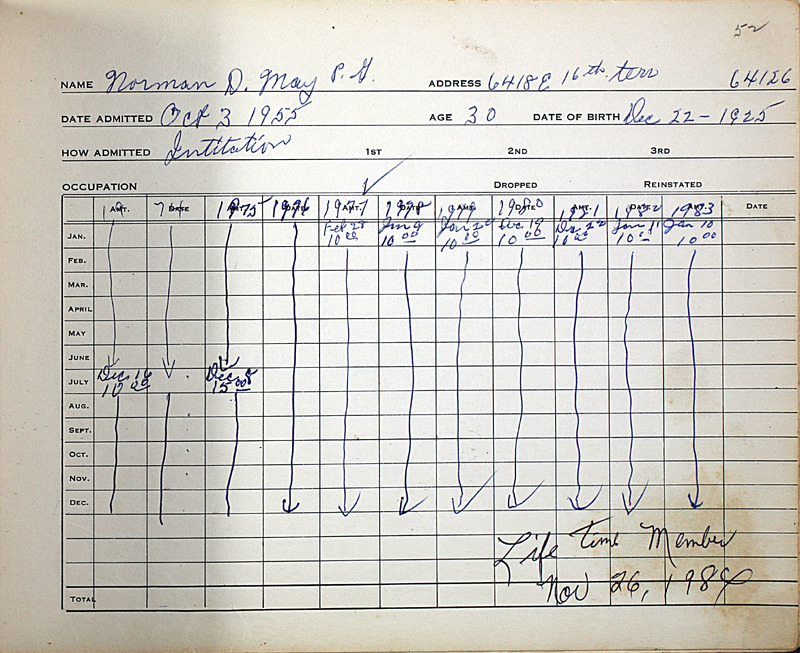 52
NAME Norman D. May P. G. ADDRESS 6418 E 16th terr 64126
DATE ADMITTED Oct 3 1955 AGE 30 DATE OF BIRTH Dec 22 - 1925
HOW ADMITTED Intitation 1ST 2ND 3RD
OCCUPATION DROPPED REINSTATED
AMT. DATE AMT. DATE AMT. DATE AMT. DATE AMT. DATE AMT. DATE
1975 1976 1977 1978 1979 1980 1981 1982 1983
JAN. Feb 28 Jan 9 Jan 2 Dec 18 Jan 11 Jan 10
10 00 10 00 10 00 10 00 10 00 10 00 10 00
FEB.
MAR.
APRIL
MAY
JUNE
JULY Dec 16 Dec 8
10 00 15 00
AUG.
SEPT.
OCT.
NOV.
DEC.
Life Time Member
Nov 26, 1984
TOTAL